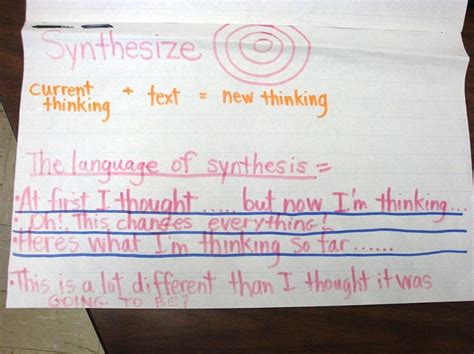 Synthesize
current thinking + text = new thinking
The language of synthesis =
• At first I thought ..... but now I'm thinking...
• Oh! This changes everything!
• Heres what I'm thinking so far......
• This is a lot different than I thought it was
GOING TO BE!